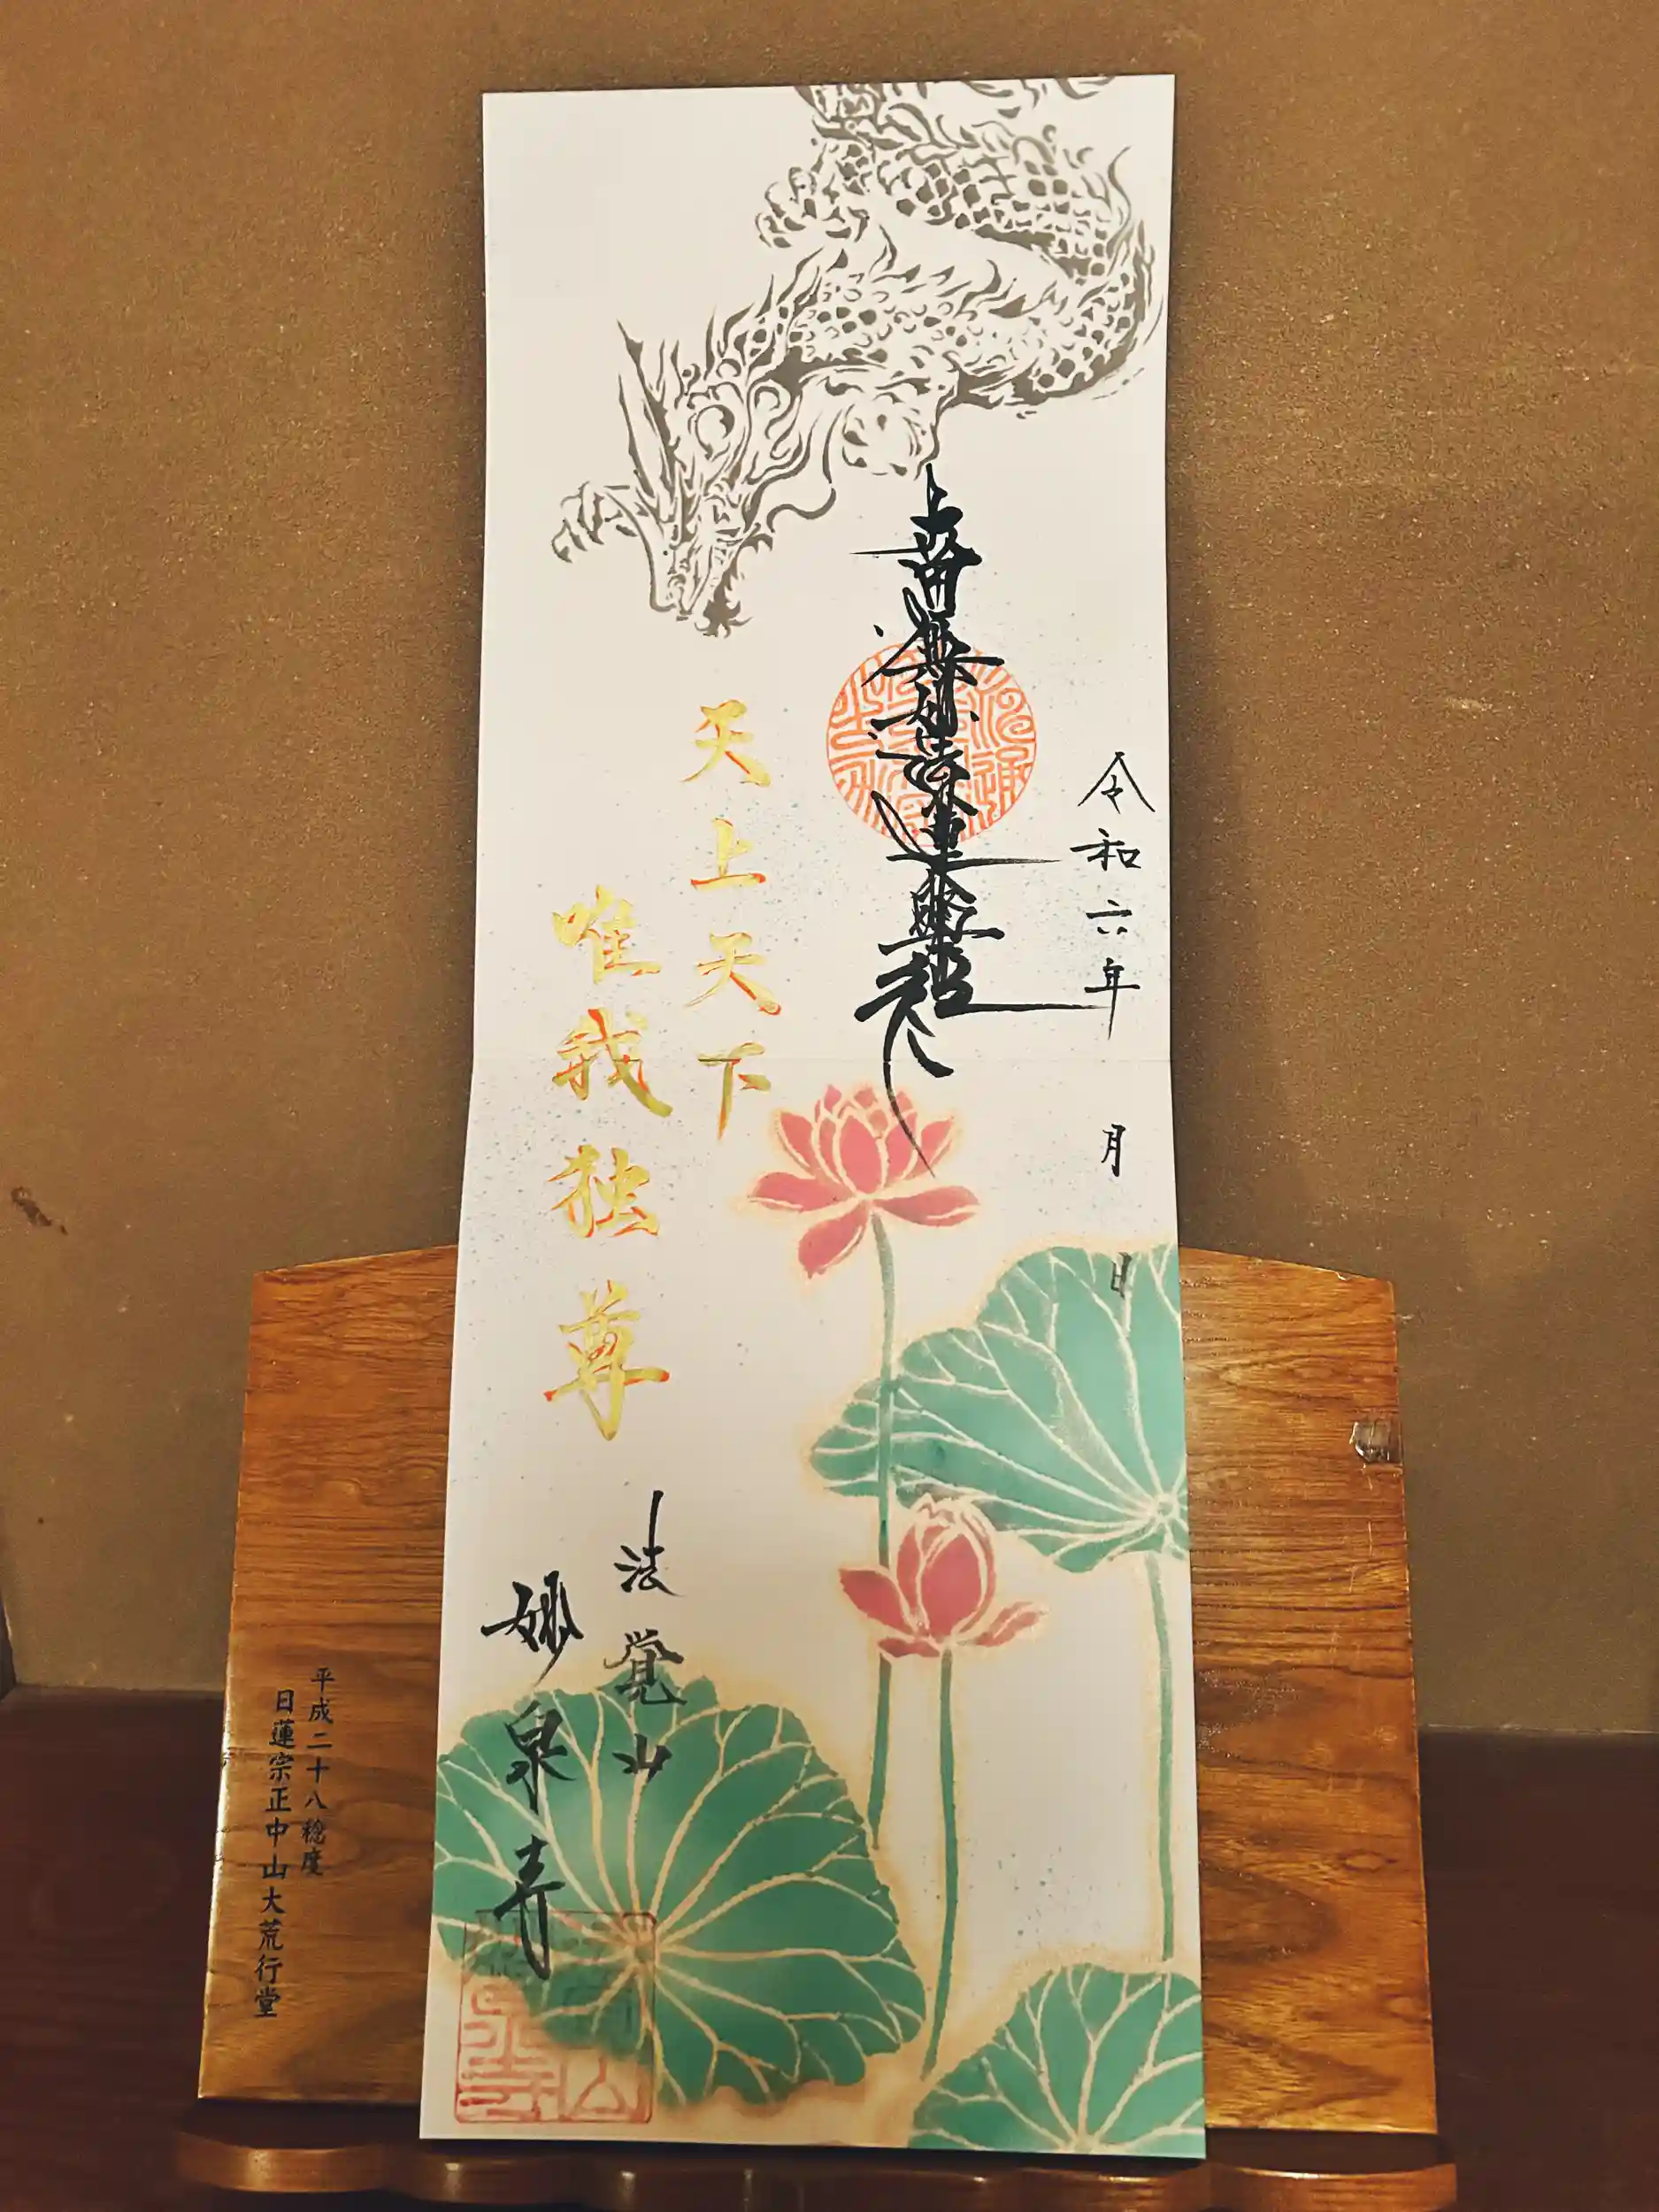 令和六年 月 日
奉
南無妙法蓮華経
天上天下
唯我独尊
法覚山
妙泉寺
平成二十八稔度
日蓮宗正中山大荒行堂